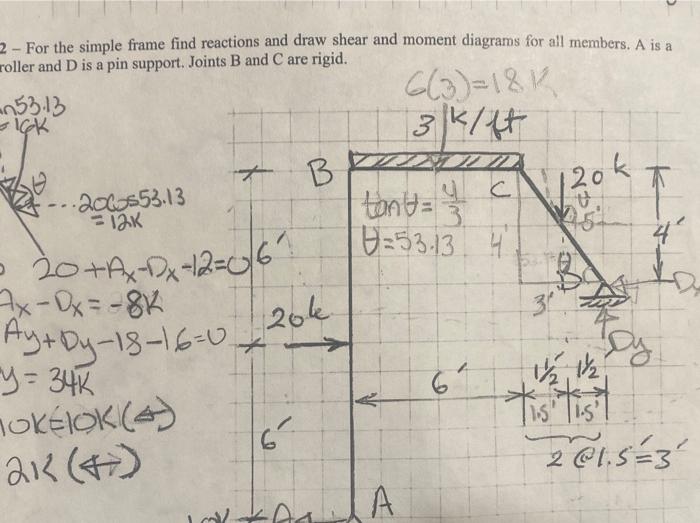 2 – For the simple frame find reactions and draw shear and moment diagrams for all members. A is a
roller and D is a pin support. Joints B and C are rigid.
6(3)=18K
3 k/ft
n53.13
=16K
θ
20cos53.13
=12K
20+Ax-Dx-12=0
Ax-Dx=-8K
Ay+Dy-18-16=0
y=34K
10K≠10K(↔)
2K(↔)
B
C
tanθ=4/3
θ=53.13
4'
20k
θ
5'
θ
4'
3'
D
Dy
6'
20k
6'
6'
1½' 1½
1.5' 1.5'
2 @1.5'=3'
A